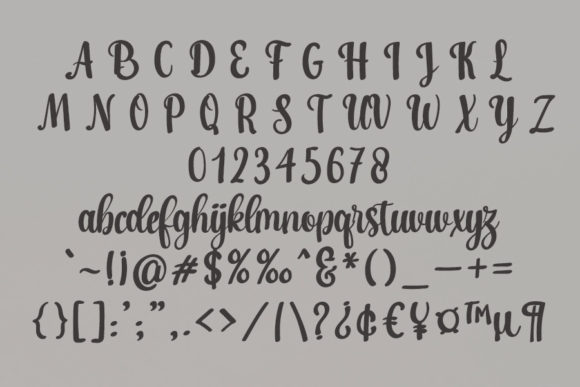 A B C D E F G H I J K L
M N O P Q R S T U V W X Y Z
012345678
abcdefghijklmnopqrstuvwxyz
`~!¡@#$%‰^&*()_—+=
{}[]:’;”,.<>/|\?¿¢€¥¤™µ¶